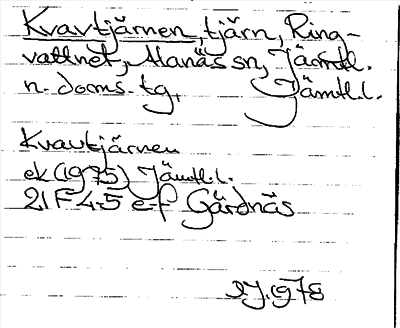 Kvavtjärnen, tjärn, Ring-
vattnet, Alanäs sn, Jämtl.
n. doms. tg, Jämtl.l.
Kvavtjärnen
ek (1975) Jämtl.l.
21F4-5 e-f Gärdnäs
1978